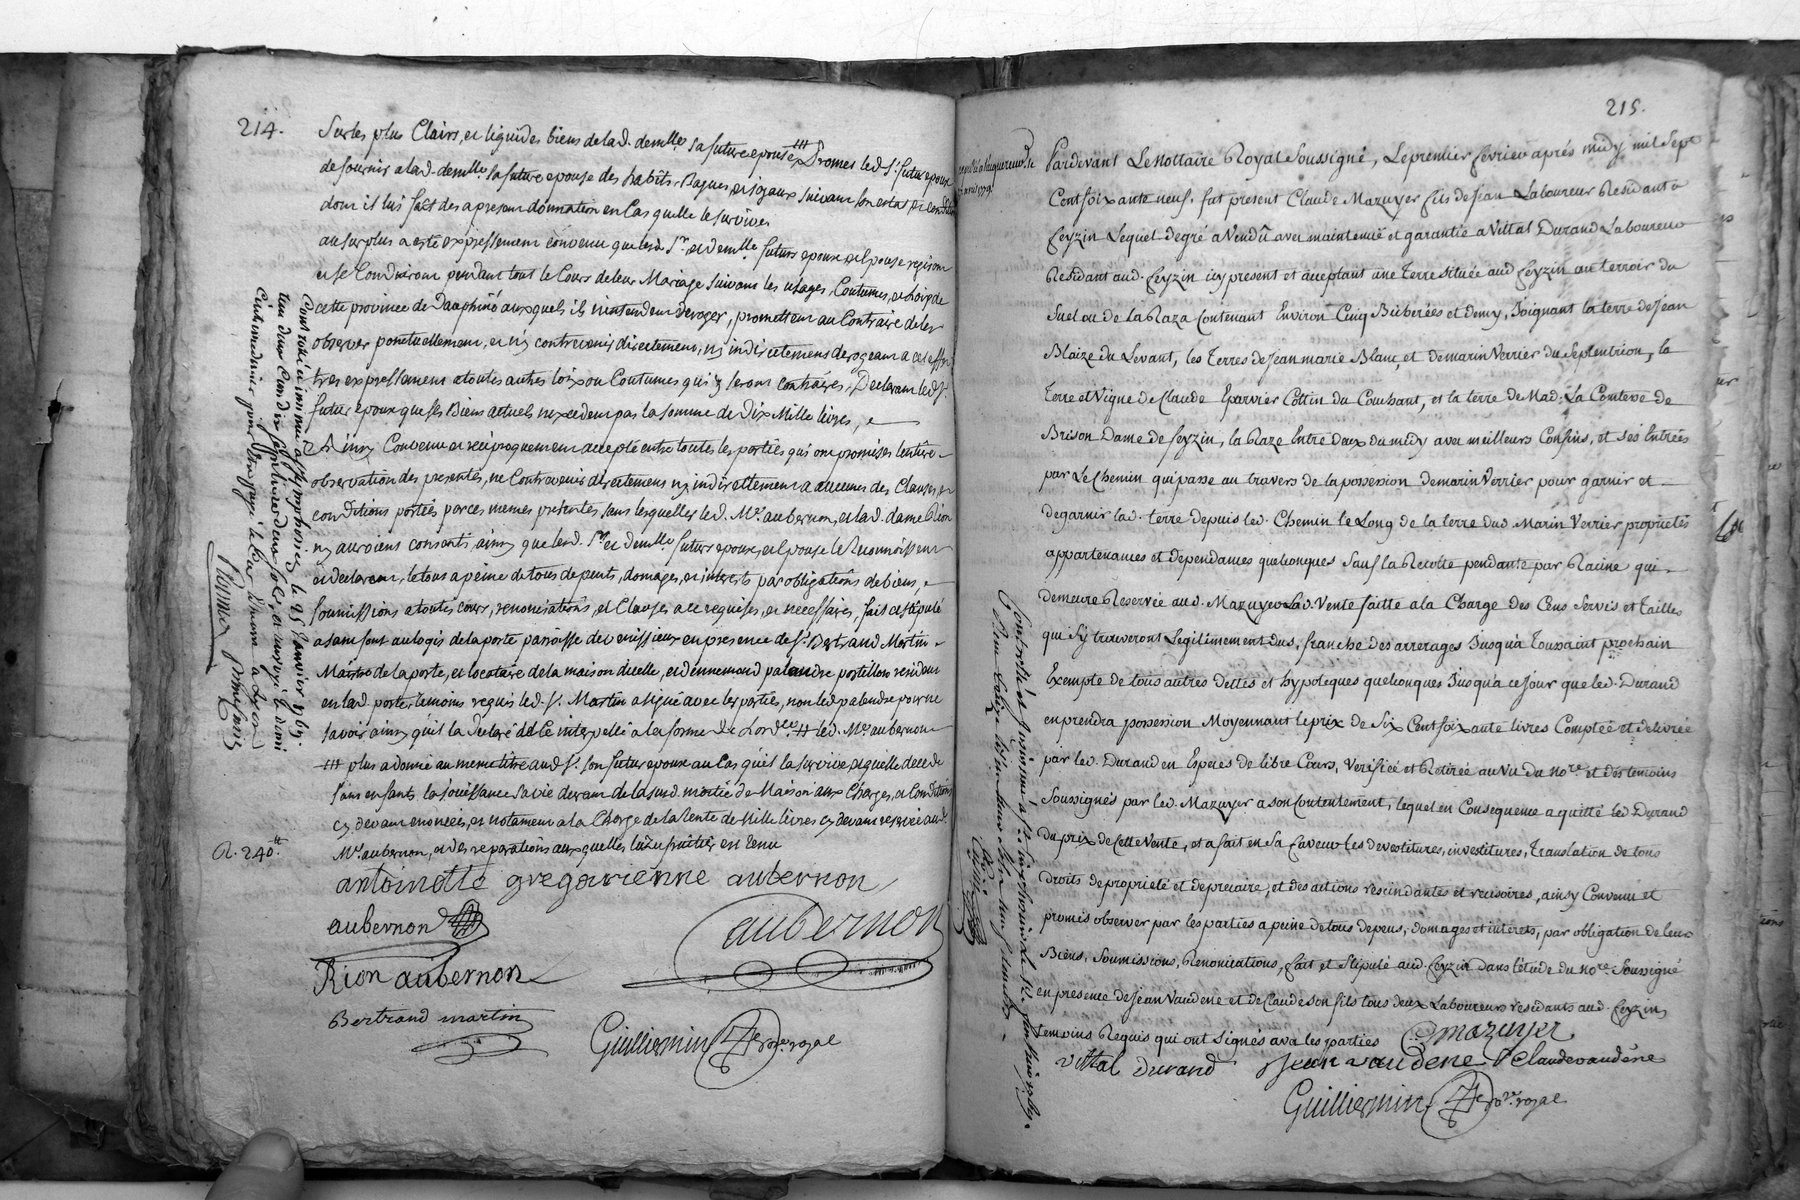 214.
Sur les plus Clairs, et liquides biens de lad. demlle sa future epouse Promet led. Sr. futur epoux
de fournir a lad. demlle sa future epouse des habits, Bagues, et joyaux suivant son estat et condition
dont il lui fait des a present donnation en Cas quelle le survive
au surplus a esté expressement convenu que lesd. Sr. et demlle futurs epoux et epouse regiront
et se Conduiront pendant tout le Cours de leur Mariage suivant les usages Coutumes, et Loix de
cette province de Dauphiné auxquels ils n'intendent deroger, promettent au Contraire de les
observer ponctuellement, et ny contrevenir directement, ny indirectement derogeant a cet effet
tres expressement a toutes autres loix ou Coutumes qui y seront contraires, Declarant led. Sr.
futur epoux que ses Biens actuels n'excedent pas la somme de Dix Mille livres, et
Ainsy Convenu et reciproquement accepté entre toutes les parties qui ont promises l'entiere
observation des presentes, ne Contrevenir directement ny indirectement a aucunes des Clauses, et
conditions portées par ces memes presentes sans lesquelles led. Mr. aubernon, et lad. dame Rion
ny auroient consenti ainsy que lesd. Sr. et demlle futurs epoux, et epouse le Reconnoissent
et declarent, le tous a peine de tous depents, domages, et interests par obligations de biens,
soumissions a toutes cours, renonciations, et Clauses a ce requises, et necessaires, fait et stipulé
a saint font au logis de la porte parroisse de venissieux en presence de Sr. Bertrand Martin
Maitre de la porte, et locataire de la maison dicelle, et d'ennemond palandre postillon residant
en lad. porte, temoins requis led. Sr. Martin a signé avec les parties, non led palandre pour ne
savoir ainsy qu'il la Declaré de ce interpellé a la forme de Lordce. # led. Mr. aubernon
plus a donné au meme titre aud Sr. son futur epoux au Cas quil la survive et quelle decede
sans enfants la jouissance sa vie durant de lasusd. moitié de Maison aux Charges, et Conditions
cy devant enoncées, et notament a la Charge de la Rente de Mille livres cy devant reservée aud.
Mr. aubernon, et des reparations auxquelles lusufruitier est tenu
R. 240.tt
antoinette gregorienne aubernon
aubernon
aubernon
Rion aubernon
Bertrand martin
Guilliermin Nore. royal
215.
Pardevant Le Nottaire Royal Soussigné, Le premier fevrier après midy mil Sept
Cent soixante neuf, fut present Claude Mazuyer fils de Jean Laboureur Residant a
feyzin Lequel de gré a Vendû avec maintenuë et garantie a Vittal Durand Laboureur
Residant aud. feyzin icy present et acceptant une Terre située aud feyzin au terroir du
Suel ou de la Raza Contenant Environ Cinq Bicherées et demy, Joignant la terre de Jean
Blaize du Levant, les Terres de Jean marie Blanc, et de marin Verrier du Septentrion, la
Terre et Vigne de Claude Eparvier Cottin du Couchant, et la terre de Mad. La Contesse de
Brison Dame de feyzin, la Raze Entre deux du midy avec meilleurs Confins, et Ses Entrées
par Le Chemin qui passe au travers de la possession de marin Verrier pour garnir et
degarnir lad. terre depuis led. Chemin le Long de la terre dud Marin Verrier proprietés
appartenances et dependances quelconques Sauf la Recolte pendante par Racine qui
demeure Reservée aud. Mazuyer Lad. Vente faitte a la Charge des Cens Servis et Tailles
qui s'y trouveront Legitimement dus, franche des arrerages Jusqu'a Toussaint prochain
Exempte de tous autres dettes et hypoteques quelconques Jusqu'a ce Jour que led. Durand
en prendra possession Moyennant le prix de Six Cent soixante livres Comptée et delivrée
par led. Durand en Especes de libre Cours, Verifiée et Retirée au Vu du Nore. et des temoins
Soussignés par led. Mazuyer a son Contentement, lequel en Consequence a quitté led Durand
Du prix de Cette Vente, et a fait en Sa faveur les devestitures, investitures, Translation de tous
Droits de proprieté et de precaire, et des actions rescindantes et rescisoires, ainsy Convenu et
promis observer par les parties a peine de tous depens, domages et interets, par obligation de leurs
Biens, Soumissions, Renonciations, fait et Stipulé aud. feyzin dans l'étude du Nore. Soussigné
en presence de Jean Vaudene et de Claude son fils tous deux Laboureurs residants aud. feyzin
temoins Requis qui ont Signés avec les parties
C mazuyer
vittal Durand
Jean vaudene
Claude vaudène
Guilliermin Nore. royal